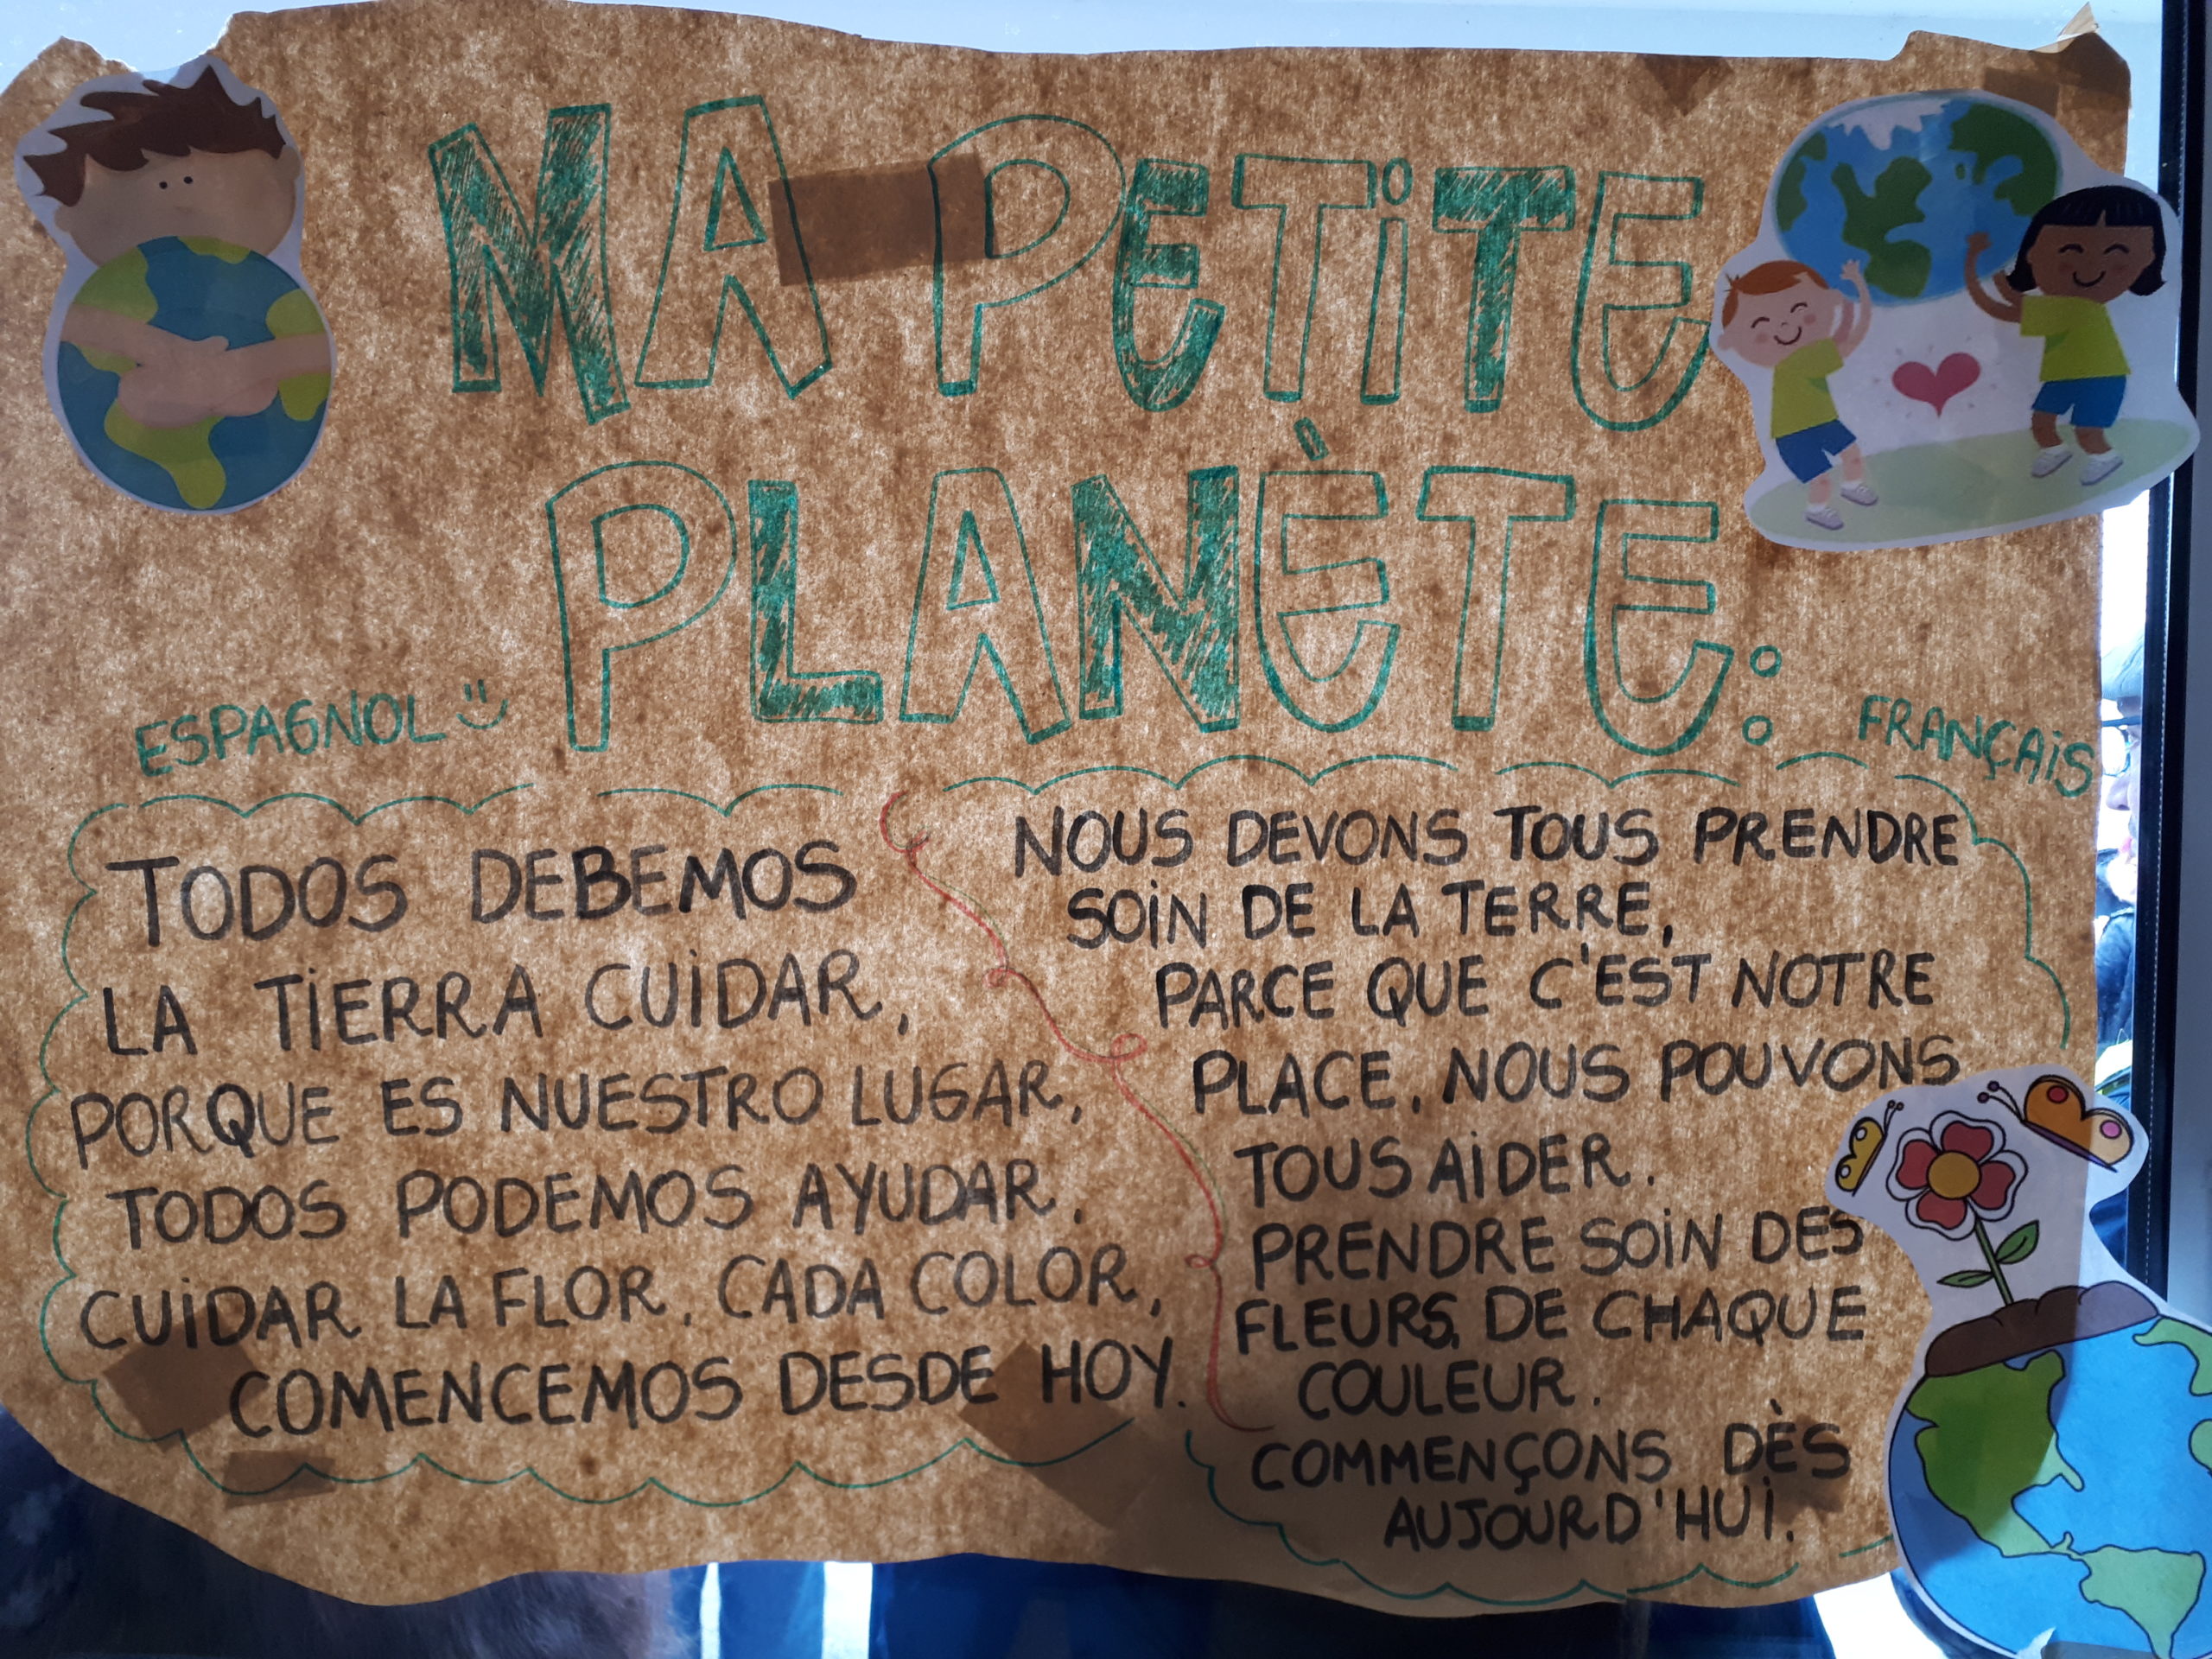 MA PETiTE
PLANÈTE:
ESPAGNOL
TODOS DEBEMOS
LA TiERRA CUiDAR,
PORQUE ES NUESTRO LUGAR,
TODOS PODEMOS AYUDAR.
CUiDAR LA FLOR, CADA COLOR,
COMENCEMOS DESDE HOY.
FRANÇAiS
NOUS DEVONS TOUS PRENDRE
SOiN DE LA TERRE,
PARCE QUE C'EST NOTRE
PLACE, NOUS POUVONS
TOUS AiDER.
PRENDRE SOiN DES
FLEURS, DE CHAQUE
COULEUR.
COMMENÇONS DÈS
AUJOURD'HUi.